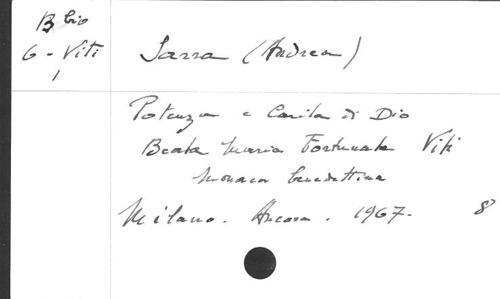 B bio
6 - Viti
1
Sarra (Andrea)
Potenza e Carità di Dio
Beata Maria Fortunata Viti
monaca benedettina
Milano. Ancora. 1967. 8°